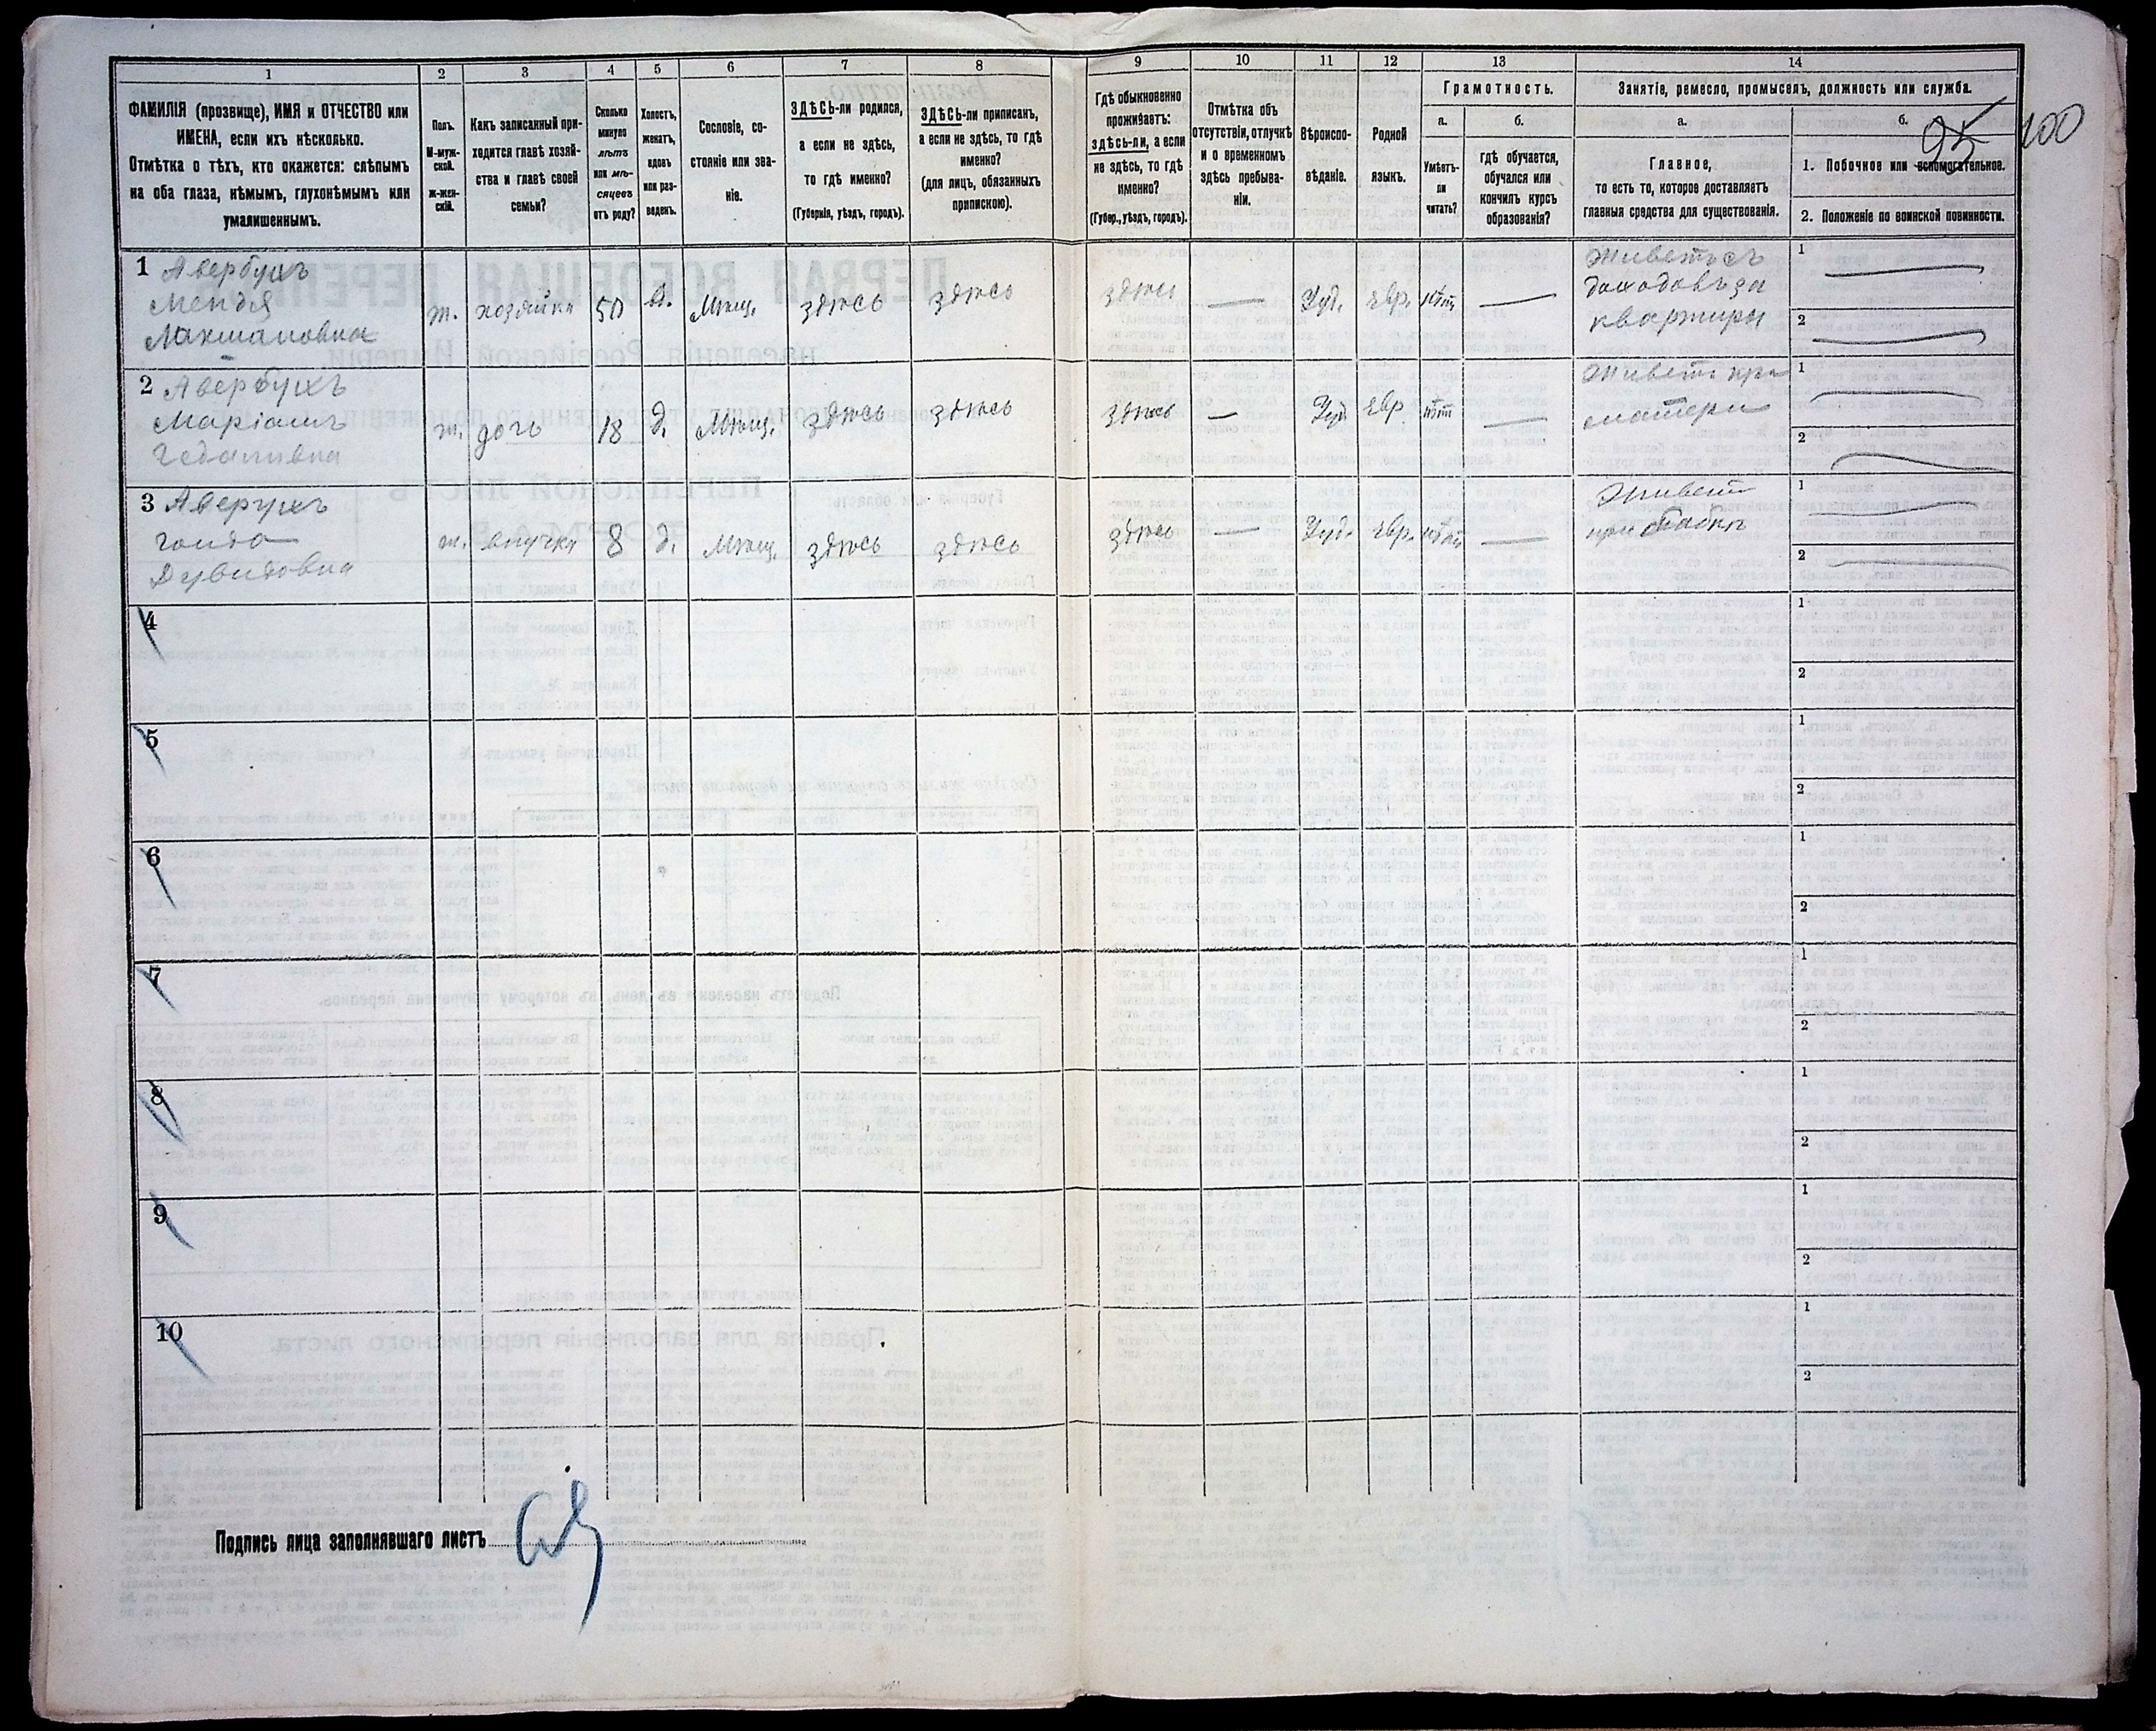 1
2
3
4
5
6
7
8
9
10
11
12
13
14
ФАМИЛІЯ (прозвище), ИМЯ и ОТЧЕСТВО или
ИМЕНА, если ихъ нѣсколько.
Отмѣтка о тѣхъ, кто окажется: слѣпымъ
на оба глаза, нѣмымъ, глухонѣмымъ или
умалишеннымъ.
Полъ.
М-муж-
ской.
Ж-жен-
скій.
Какъ записанный при-
ходится главѣ хозяй-
ства и главѣ своей
семьи?
Сколько
минуло
лѣтъ
или мѣ-
сяцевъ
отъ роду?
Холостъ,
женатъ,
вдовъ
или раз-
веденъ.
Сословіе, со-
стояніе или зва-
ніе.
ЗДѢСЬ-ли родился,
а если не здѣсь,
то гдѣ именно?
(Губернія, уѣздъ, городъ).
ЗДѢСЬ-ли приписанъ,
а если не здѣсь, то гдѣ
именно?
(для лицъ, обязанныхъ
припискою).
Гдѣ обыкновенно
проживаетъ:
здѣсь-ли, а если
не здѣсь, то гдѣ
именно?
(Губер., уѣздъ, городъ).
Отмѣтка объ
отсутствіи, отлучкѣ
и о временномъ
здѣсь пребыва-
ніи.
Вѣроиспо-
вѣданіе.
Родной
языкъ.
Грамотность.
а.
Умѣетъ-
ли
читать?
б.
гдѣ обучается,
обучался или
кончилъ курсъ
образованія?
Занятіе, ремесло, промыселъ, должность или служба.
а.
Главное,
то есть то, которое доставляетъ
главныя средства для существованія.
б.
1. Побочное или вспомогательное.
2. Положеніе по воинской повинности.
95
100
1 Авербухъ
ж.
хозяйка
50
в.
Мѣщ.
здѣсь
здѣсь
здѣсь
—
Іуд.
Евр.
нѣтъ
—
Живетъ съ
доходовъ за
квартиры
1
2
2 Авербухъ
Маріамъ
ж.
дочь
18
д.
Мѣщ.
здѣсь
здѣсь
здѣсь
—
Іуд.
Евр.
нѣтъ
—
Живетъ при
матери
1
2
3 Аверухъ
Дувидовна
ж.
внучка
8
д.
Мѣщ.
здѣсь
здѣсь
здѣсь
—
Іуд.
Евр.
нѣтъ
—
Живетъ
при бабкѣ
1
2
4
1
2
5
1
2
6
1
2
7
1
2
8
1
2
9
1
2
10
1
2
Подпись лица заполнявшаго листъ